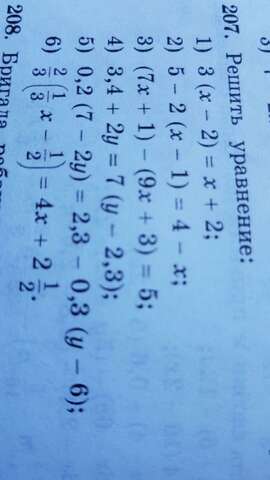 207. Решить уравнение:
1) 3 (x − 2) = x + 2;
2) 5 − 2 (x − 1) = 4 − x;
3) (7x + 1) − (9x + 3) = 5;
4) 3,4 + 2y = 7 (y − 2,3);
5) 0,2 (7 − 2y) = 2,3 − 0,3 (y − 6);
6) 2/3 (1/3 x − 1/2) = 4x + 2 1/2.
208. Бригада